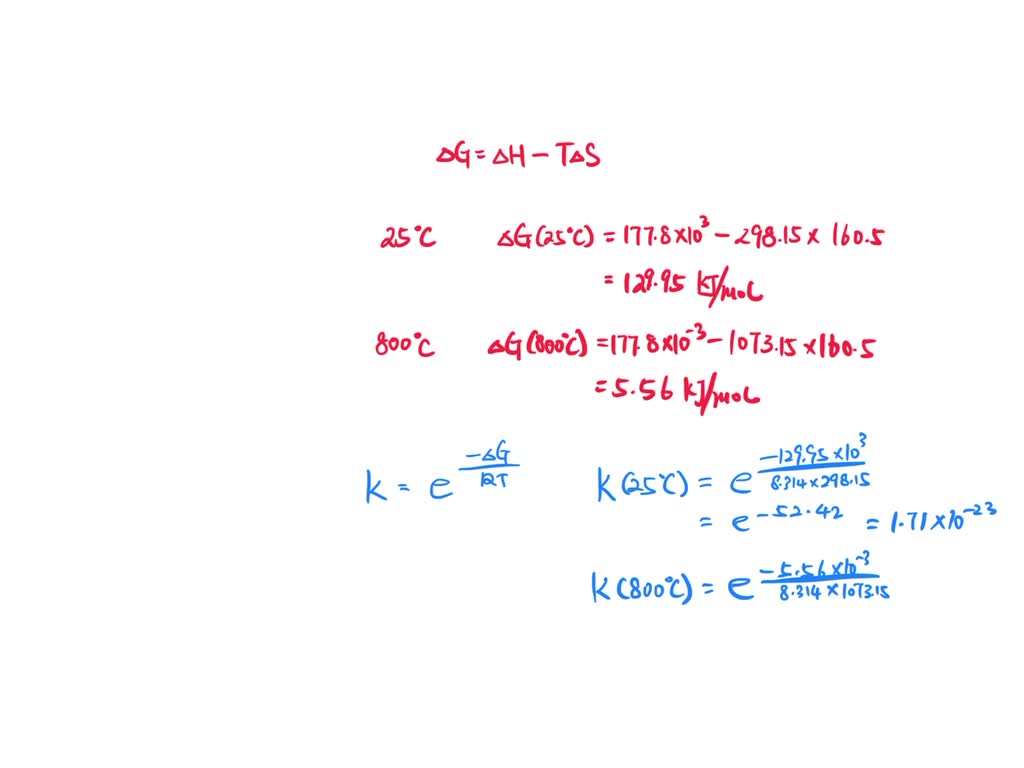 ΔG = ΔH - TΔS
25°C ΔG(25°C) = 177.8×10³ - 298.15× 160.5
= 129.95 KJ/moL
800°C ΔG(800°C) = 177.8×10⁻³ - 1073.15×160.5
= 5.56 KJ/moL
K = e^(-ΔG/RT) K(25°C) = e^(-129.95×10³/8.314×298.15)
= e^(-52.42) = 1.71×10⁻²³
K(800°C) = e^(-5.56×10⁻³/8.314×1073.15)